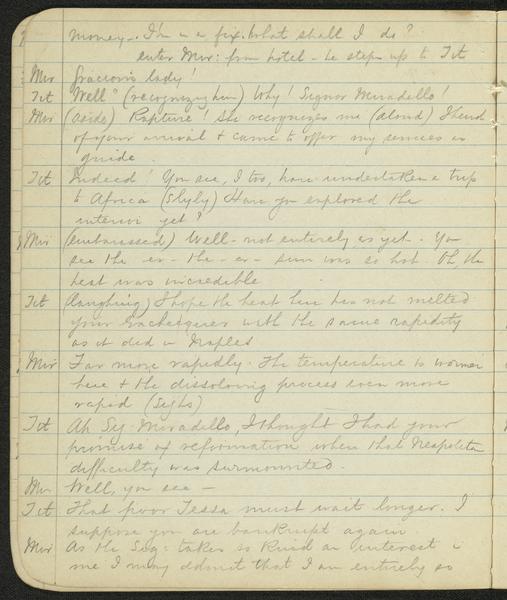 money - I'm in a fix. What shall I do?
enter Mir: from hotel - he steps up to Tit
Mir Gracious lady!
Tit "Well" (recognizing him) Why! Signor Miradello!
Mir (aside) Rapture! She recognizes me (aloud) I heard
of your arrival & came to offer my services as
guide.
Tit Indeed! You see, I too, have undertaken a trip
to Africa (slyly) Have you explored the
interior yet?
Mir (embarassed) Well - not entirely as yet. You
see the - er - the - er - sun was so hot. Oh, the
heat was incredible
Tit (laughing) I hope the heat here has not melted
your Exchequer with the same rapidity
as it did in Naples
Mir Far more rapidly. The temperature is warmer
here & the dissolving process even more
rapid (sighs)
Tit Ah Sig. Miradello, I thought I had your
promise of reformation when that Neapolitan
difficulty was surmounted.
Mir Well, you see -
Tit That poor Tessa must wait longer. I
suppose you are bankrupt again.
Mir As the Sig: takes so kind an interest in
me I may admit that I am entirely so